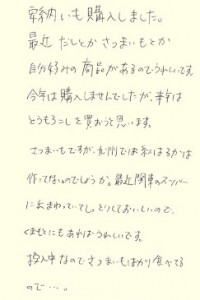 安納いも購入しました。
最近 だしとか さつまいもとか
自分好みの商品があるのでうれしいです。
今年は購入しませんでしたが、来年は
とうもろこしを買おうと思います。
さつまいもですが、九州では紅はるかは
作ってないのでしょうか。最近関東のスーパー
に出まわっていて、とてもおいしいので、
くまもとにもあればうれしいです。
授乳中なのでさつまいもばかり食べてる
ので…。